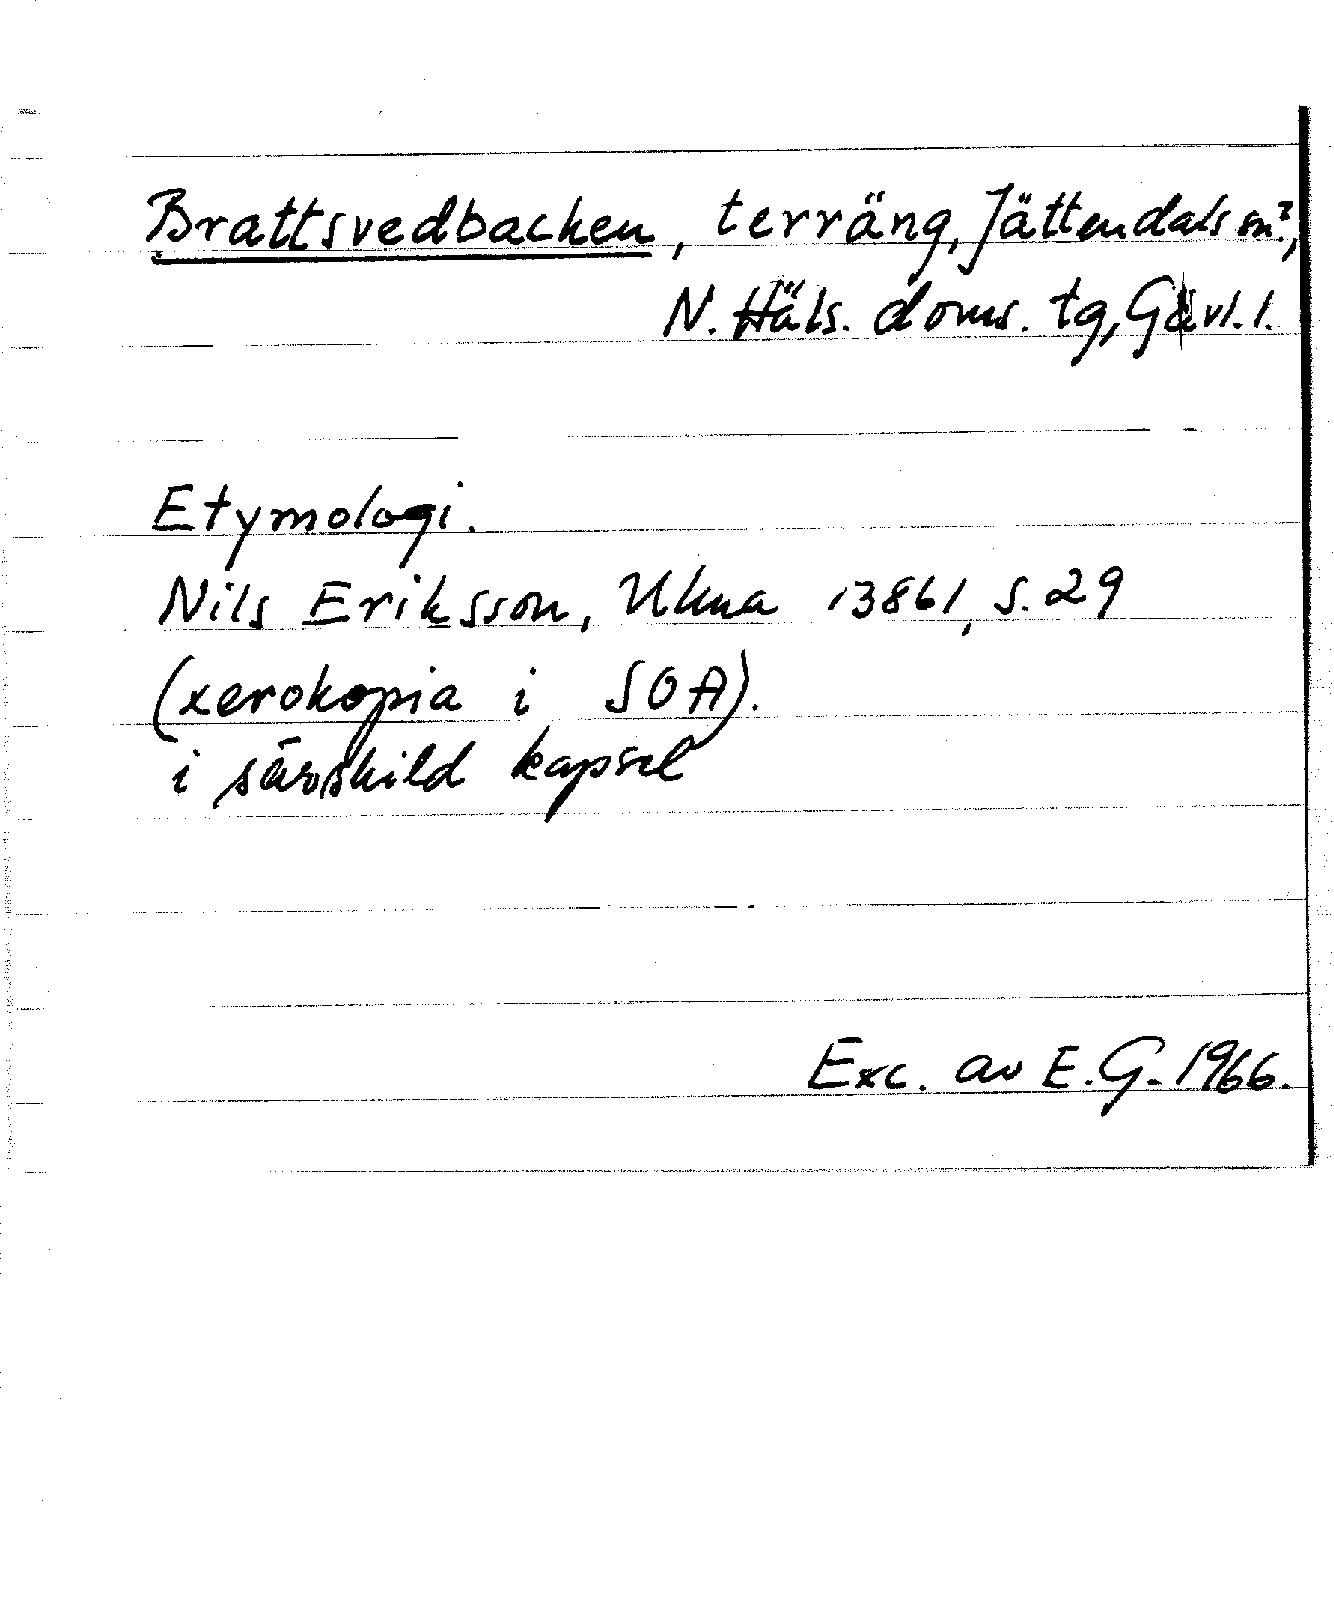 Brattsvedbacken, terräng, Jättendals sn?,
N. Häls. doms. tg, Gävl. l.
Etymologi.
Nils Eriksson, Ulma 13861, s. 29
(xerokopia i SOA).
i särskild kapsel
Exc. av E. G. 1966.